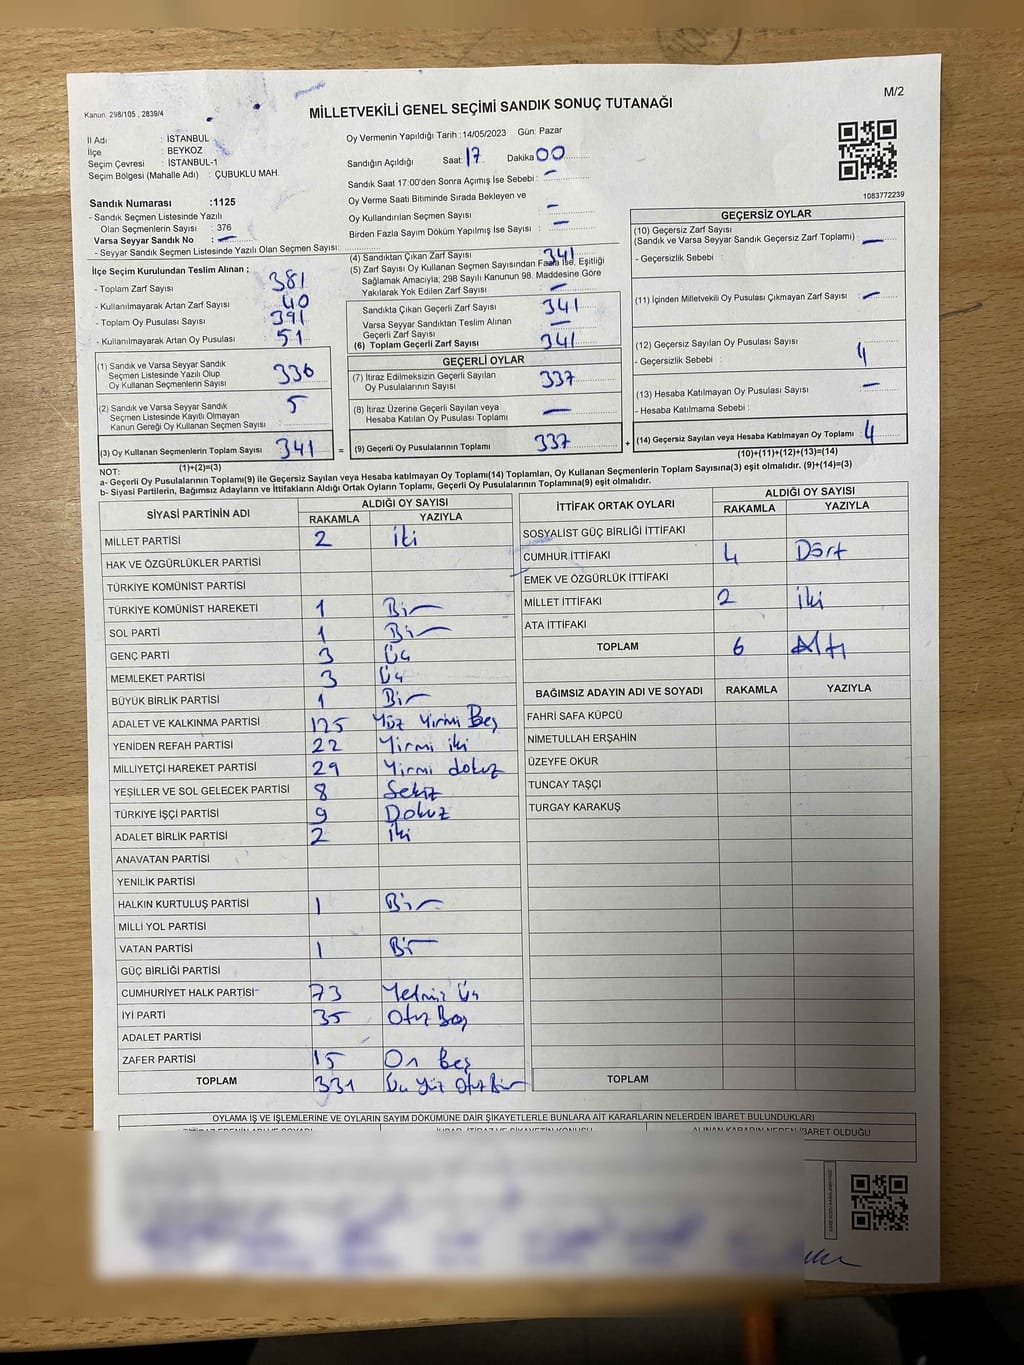 M/2
Kanun 298/105 , 2839/4
MİLLETVEKİLİ GENEL SEÇİMİ SANDIK SONUÇ TUTANAĞI
İl Adı : İSTANBUL
İlçe : BEYKOZ
Seçim Çevresi : İSTANBUL-1
Seçim Bölgesi (Mahalle Adı) : ÇUBUKLU MAH.
Sandık Numarası :1125
- Sandık Seçmen Listesinde Yazılı
Olan Seçmenlerin Sayısı : 376
Varsa Seyyar Sandık No : —
- Seyyar Sandık Seçmen Listesinde Yazılı Olan Seçmen Sayısı:
Oy Vermenin Yapıldığı Tarih :14/05/2023 Gün: Pazar
Sandığın Açıldığı Saat: 17 Dakika 00
Sandık Saat 17:00'den Sonra Açımış İse Sebebi : —
Oy Verme Saati Bitiminde Sırada Bekleyen ve
Oy Kullandırılan Seçmen Sayısı —
Birden Fazla Sayım Döküm Yapılmış İse Sayısı : —
1083772239
İlçe Seçim Kurulundan Teslim Alınan ;
- Toplam Zarf Sayısı 381
- Kullanılmayarak Artan Zarf Sayısı 40
- Toplam Oy Pusulası Sayısı 391
- Kullanılmayarak Artan Oy Pusulası 51
(1) Sandık ve Varsa Seyyar Sandık
Seçmen Listesinde Yazılı Olup
Oy Kullanan Seçmenlerin Sayısı 336
(2) Sandık ve Varsa Seyyar Sandık
Seçmen Listesinde Kayıtlı Olmayan
Kanun Gereği Oy Kullanan Seçmen Sayısı 5
(3) Oy Kullanan Seçmenlerin Toplam Sayısı 341
(1)+(2)=(3)
(4) Sandıktan Çıkan Zarf Sayısı 341
(5) Zarf Sayısı Oy Kullanan Seçmen Sayısından Fazla İse, Eşitliği
Sağlamak Amacıyla; 298 Sayılı Kanunun 98. Maddesine Göre
Yakılarak Yok Edilen Zarf Sayısı —
Sandıkta Çıkan Geçerli Zarf Sayısı 341
Varsa Seyyar Sandıktan Teslim Alınan
Geçerli Zarf Sayısı —
(6) Toplam Geçerli Zarf Sayısı 341
GEÇERLİ OYLAR
(7) İtiraz Edilmeksizin Geçerli Sayılan
Oy Pusulalarının Sayısı 337
(8) İtiraz Üzerine Geçerli Sayılan veya
Hesaba Katılan Oy Pusulası Toplamı —
= (9) Geçerli Oy Pusulalarının Toplamı 337 +
GEÇERSİZ OYLAR
(10) Geçersiz Zarf Sayısı
(Sandık ve Varsa Seyyar Sandık Geçersiz Zarf Toplamı) : —
- Geçersizlik Sebebi :
(11) İçinden Milletvekili Oy Pusulası Çıkmayan Zarf Sayısı : —
(12) Geçersiz Sayılan Oy Pusulası Sayısı
- Geçersizlik Sebebi : 4
(13) Hesaba Katılmayan Oy Pusulası Sayısı —
- Hesaba Katılmama Sebebi :
(14) Geçersiz Sayılan veya Hesaba Katılmayan Oy Toplamı 4
(10)+(11)+(12)+(13)=(14)
NOT:
a- Geçerli Oy Pusulalarının Toplamı(9) ile Geçersiz Sayılan veya Hesaba katılmayan Oy Toplamı(14) Toplamları, Oy Kullanan Seçmenlerin Toplam Sayısına(3) eşit olmalıdır. (9)+(14)=(3)
b- Siyasi Partilerin, Bağımsız Adayların ve İttifakların Aldığı Ortak Oyların Toplamı, Geçerli Oy Pusulalarının Toplamına(9) eşit olmalıdır.
SİYASİ PARTİNİN ADI ALDIĞI OY SAYISI
RAKAMLA YAZIYLA
MİLLET PARTİSİ 2 iki
HAK VE ÖZGÜRLÜKLER PARTİSİ
TÜRKİYE KOMÜNİST PARTİSİ
TÜRKİYE KOMÜNİST HAREKETİ 1 Bir
SOL PARTİ 1 Bir
GENÇ PARTİ 3 Üç
MEMLEKET PARTİSİ 3 Üç
BÜYÜK BİRLİK PARTİSİ 1 Bir
ADALET VE KALKINMA PARTİSİ 125 Yüz Yirmi Beş
YENİDEN REFAH PARTİSİ 22 Yirmi iki
MİLLİYETÇİ HAREKET PARTİSİ 29 Yirmi dokuz
YEŞİLLER VE SOL GELECEK PARTİSİ 8 Sekiz
TÜRKİYE İŞÇİ PARTİSİ 9 Dokuz
ADALET BİRLİK PARTİSİ 2 iki
ANAVATAN PARTİSİ
YENİLİK PARTİSİ
HALKIN KURTULUŞ PARTİSİ 1 Bir
MİLLİ YOL PARTİSİ
VATAN PARTİSİ 1 Bir
GÜÇ BİRLİĞİ PARTİSİ
CUMHURİYET HALK PARTİSİ 73 Yetmiş Üç
İYİ PARTİ 35 Otuz Beş
ADALET PARTİSİ
ZAFER PARTİSİ 15 On Beş
TOPLAM 331 Üç Yüz Otuz Bir
İTTİFAK ORTAK OYLARI ALDIĞI OY SAYISI
RAKAMLA YAZIYLA
SOSYALİST GÜÇ BİRLİĞİ İTTİFAKI
CUMHUR İTTİFAKI 4 Dört
EMEK VE ÖZGÜRLÜK İTTİFAKI
MİLLET İTTİFAKI 2 iki
ATA İTTİFAKI
TOPLAM 6 Altı
BAĞIMSIZ ADAYIN ADI VE SOYADI RAKAMLA YAZIYLA
FAHRİ SAFA KÜPCÜ
NİMETULLAH ERŞAHİN
ÜZEYFE OKUR
TUNCAY TAŞÇI
TURGAY KARAKUŞ
TOPLAM
OYLAMA İŞ VE İŞLEMLERİNE VE OYLARIN SAYIM DÖKÜMÜNE DAİR ŞİKAYETLERLE BUNLARA AİT KARARLARIN NELERDEN İBARET BULUNDUKLARI
ALINAN KARARIN NEDEN İBARET OLDUĞU